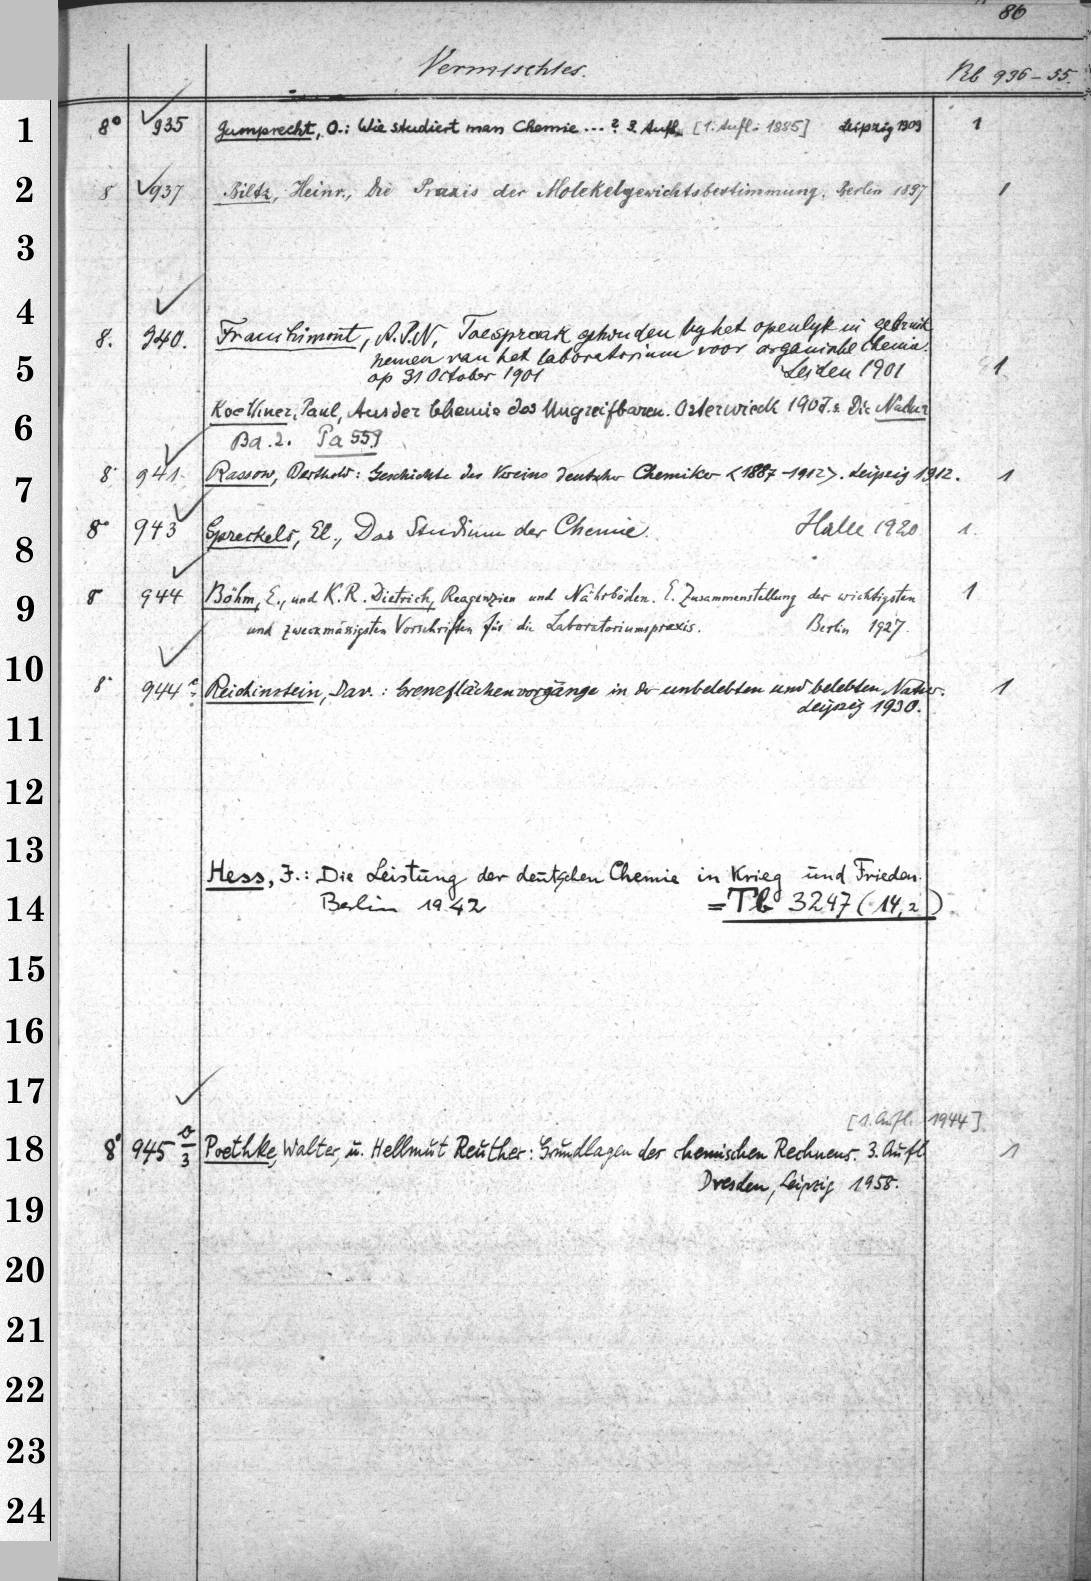 86
Vermischtes.
Rb 936-55.
1 8° 935 Gumprecht, O.: Wie studiert man Chemie ... ? 3. Aufl. [1. Aufl. 1885] Leipzig 1909 1
2 8 937 Biltz, Heinr., Die Praxis der Molekelgewichtsbestimmung. Berlin 1897 1
3
4
8. 940. Franchimont, A.P.N, Toespraak gehouden by het openlyk in gebruik
nemen van het laboratorium voor organische Chemie.
5 op 31 October 1901 Leiden 1901 1
6 Koethner, Paul, Aus der Chemie des Ungreifbaren. Osterwieck 1907. = Die Natur
Bd. 2. Pa 559
7 8° 941. Rassow, Berthold: Geschichte des Vereins deutscher Chemiker <1887-1912>. Leipzig 1912. 1
8 8° 943 Spreckels, El., Das Studium der Chemie. Halle 1920 1.
9 8° 944 Böhm, E., und K. R. Dietrich, Reagenzien und Nährböden. E. Zusammenstellung der wichtigsten 1
und zweckmässigsten Vorschriften für die Laboratoriumspraxis. Berlin 1927.
10 8° 944 Reichinstein, Dav.: Grenzflächenvorgänge in der unbelebten und belebten Natur. 1
11 Leipzig 1930.
12
13
Hess, J.: Die Leistung der deutschen Chemie in Krieg und Frieden.
14 Berlin 1942 = Tb 3247 (14,2)
15
16
17
[1. Aufl. 1944]
18 8° 945 3 Poethke, Walter, u. Hellmut Reuther: Grundlagen des chemischen Rechnens. 3. Aufl 1
19 Dresden, Leipzig 1958.
20
21
22
23
24